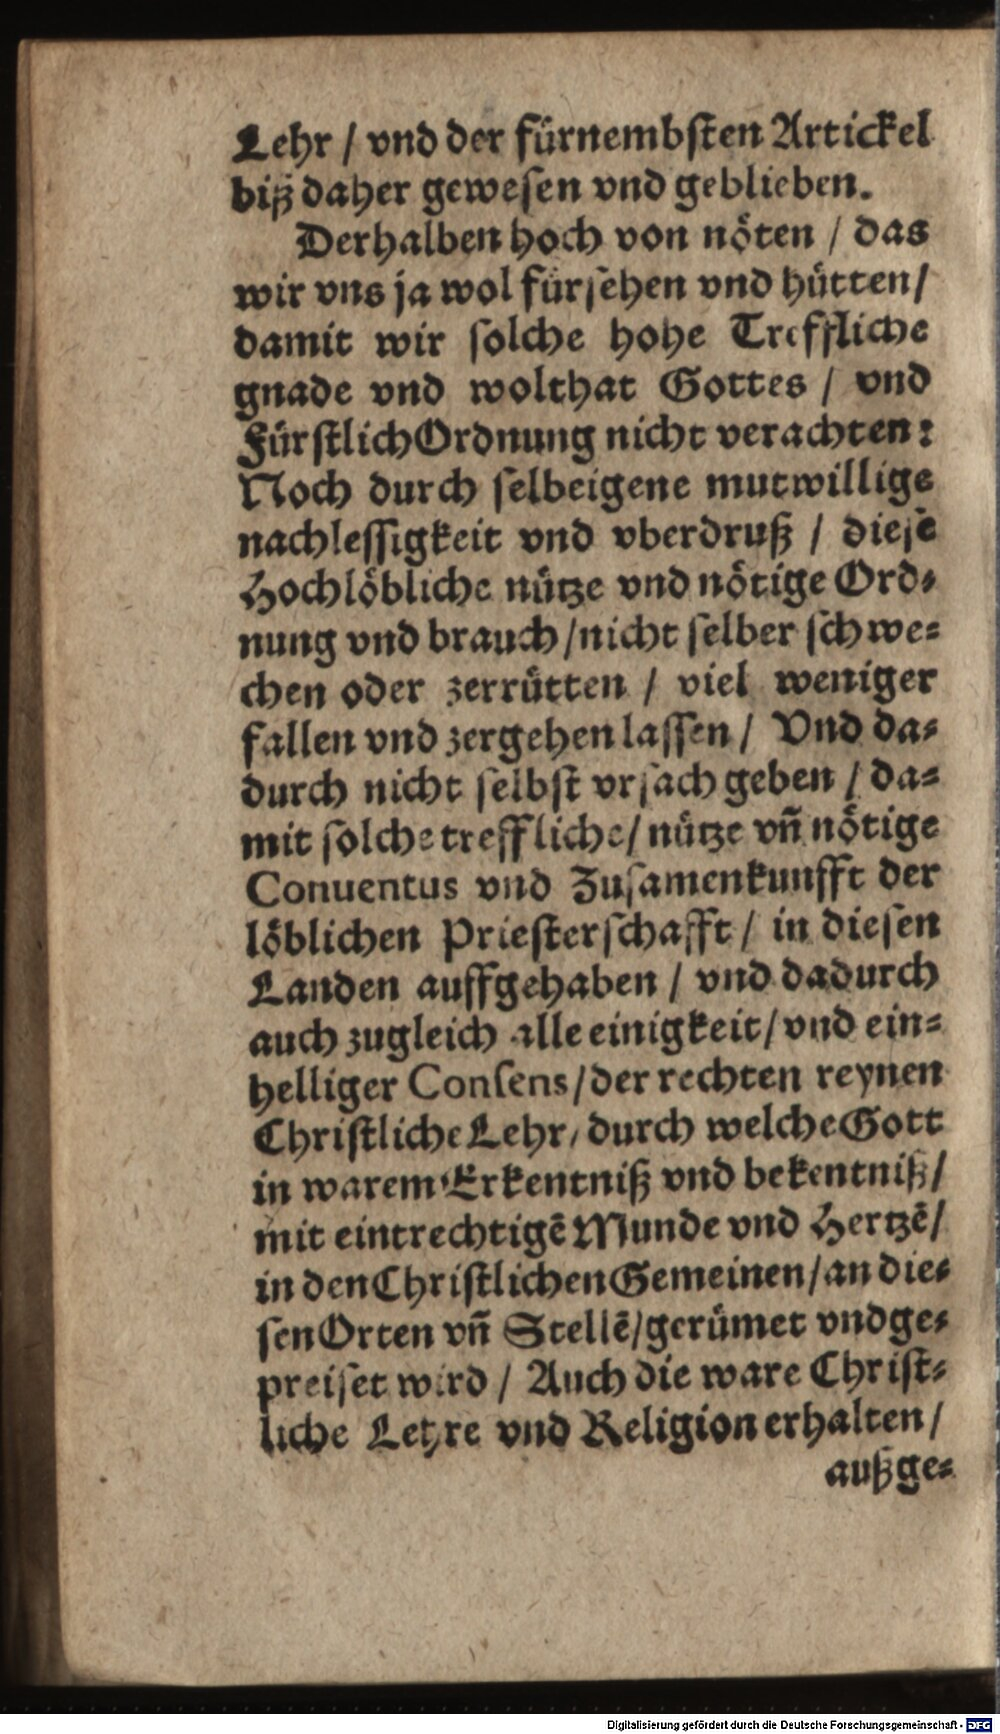 Lehr / vnd der fürnembſten Artickel
biß daher geweſen vnd geblieben.
Derhalben hoch von nöten / das
wir vns ja wol fürſehen vnd hütten /
damit wir ſolche hohe Treffliche
gnade vnd wolthat Gottes / vnd
Fürſtlich Ordnung nicht verachten:
Noch durch ſelbeigene mutwillige
nachleſſigkeit vnd vberdruß / dieſe
Hochlöbliche nütze vnd nötige Ord⸗
nung vnd brauch / nicht ſelber ſchwe⸗
chen oder zerrütten / viel weniger
fallen vnd zergehen laſſen / Vnd da⸗
durch nicht ſelbſt vrſach geben / da⸗
mit ſolche treffliche / nütze vñ nötige
Conuentus vnd Zuſamenkunfft der
löblichen Prieſterſchafft / in dieſen
Landen auffgehaben / vnd dadurch
auch zugleich alle einigkeit / vnd ein⸗
helliger Conſens / der rechten reynen
Chriſtliche Lehr / durch welche Gott
in warem Erkentniß vnd bekentniß /
mit eintrechtigē Munde vnd Hertzē /
in den Chriſtlichen Gemeinen / an die⸗
ſen Orten vñ Stellē / gerümet vnd ge⸗
preiſet wird / Auch die ware Chriſt⸗
liche Lehre vnd Religion erhalten /
außge⸗
Digitalisierung gefördert durch die Deutsche Forschungsgemeinschaft - DFG